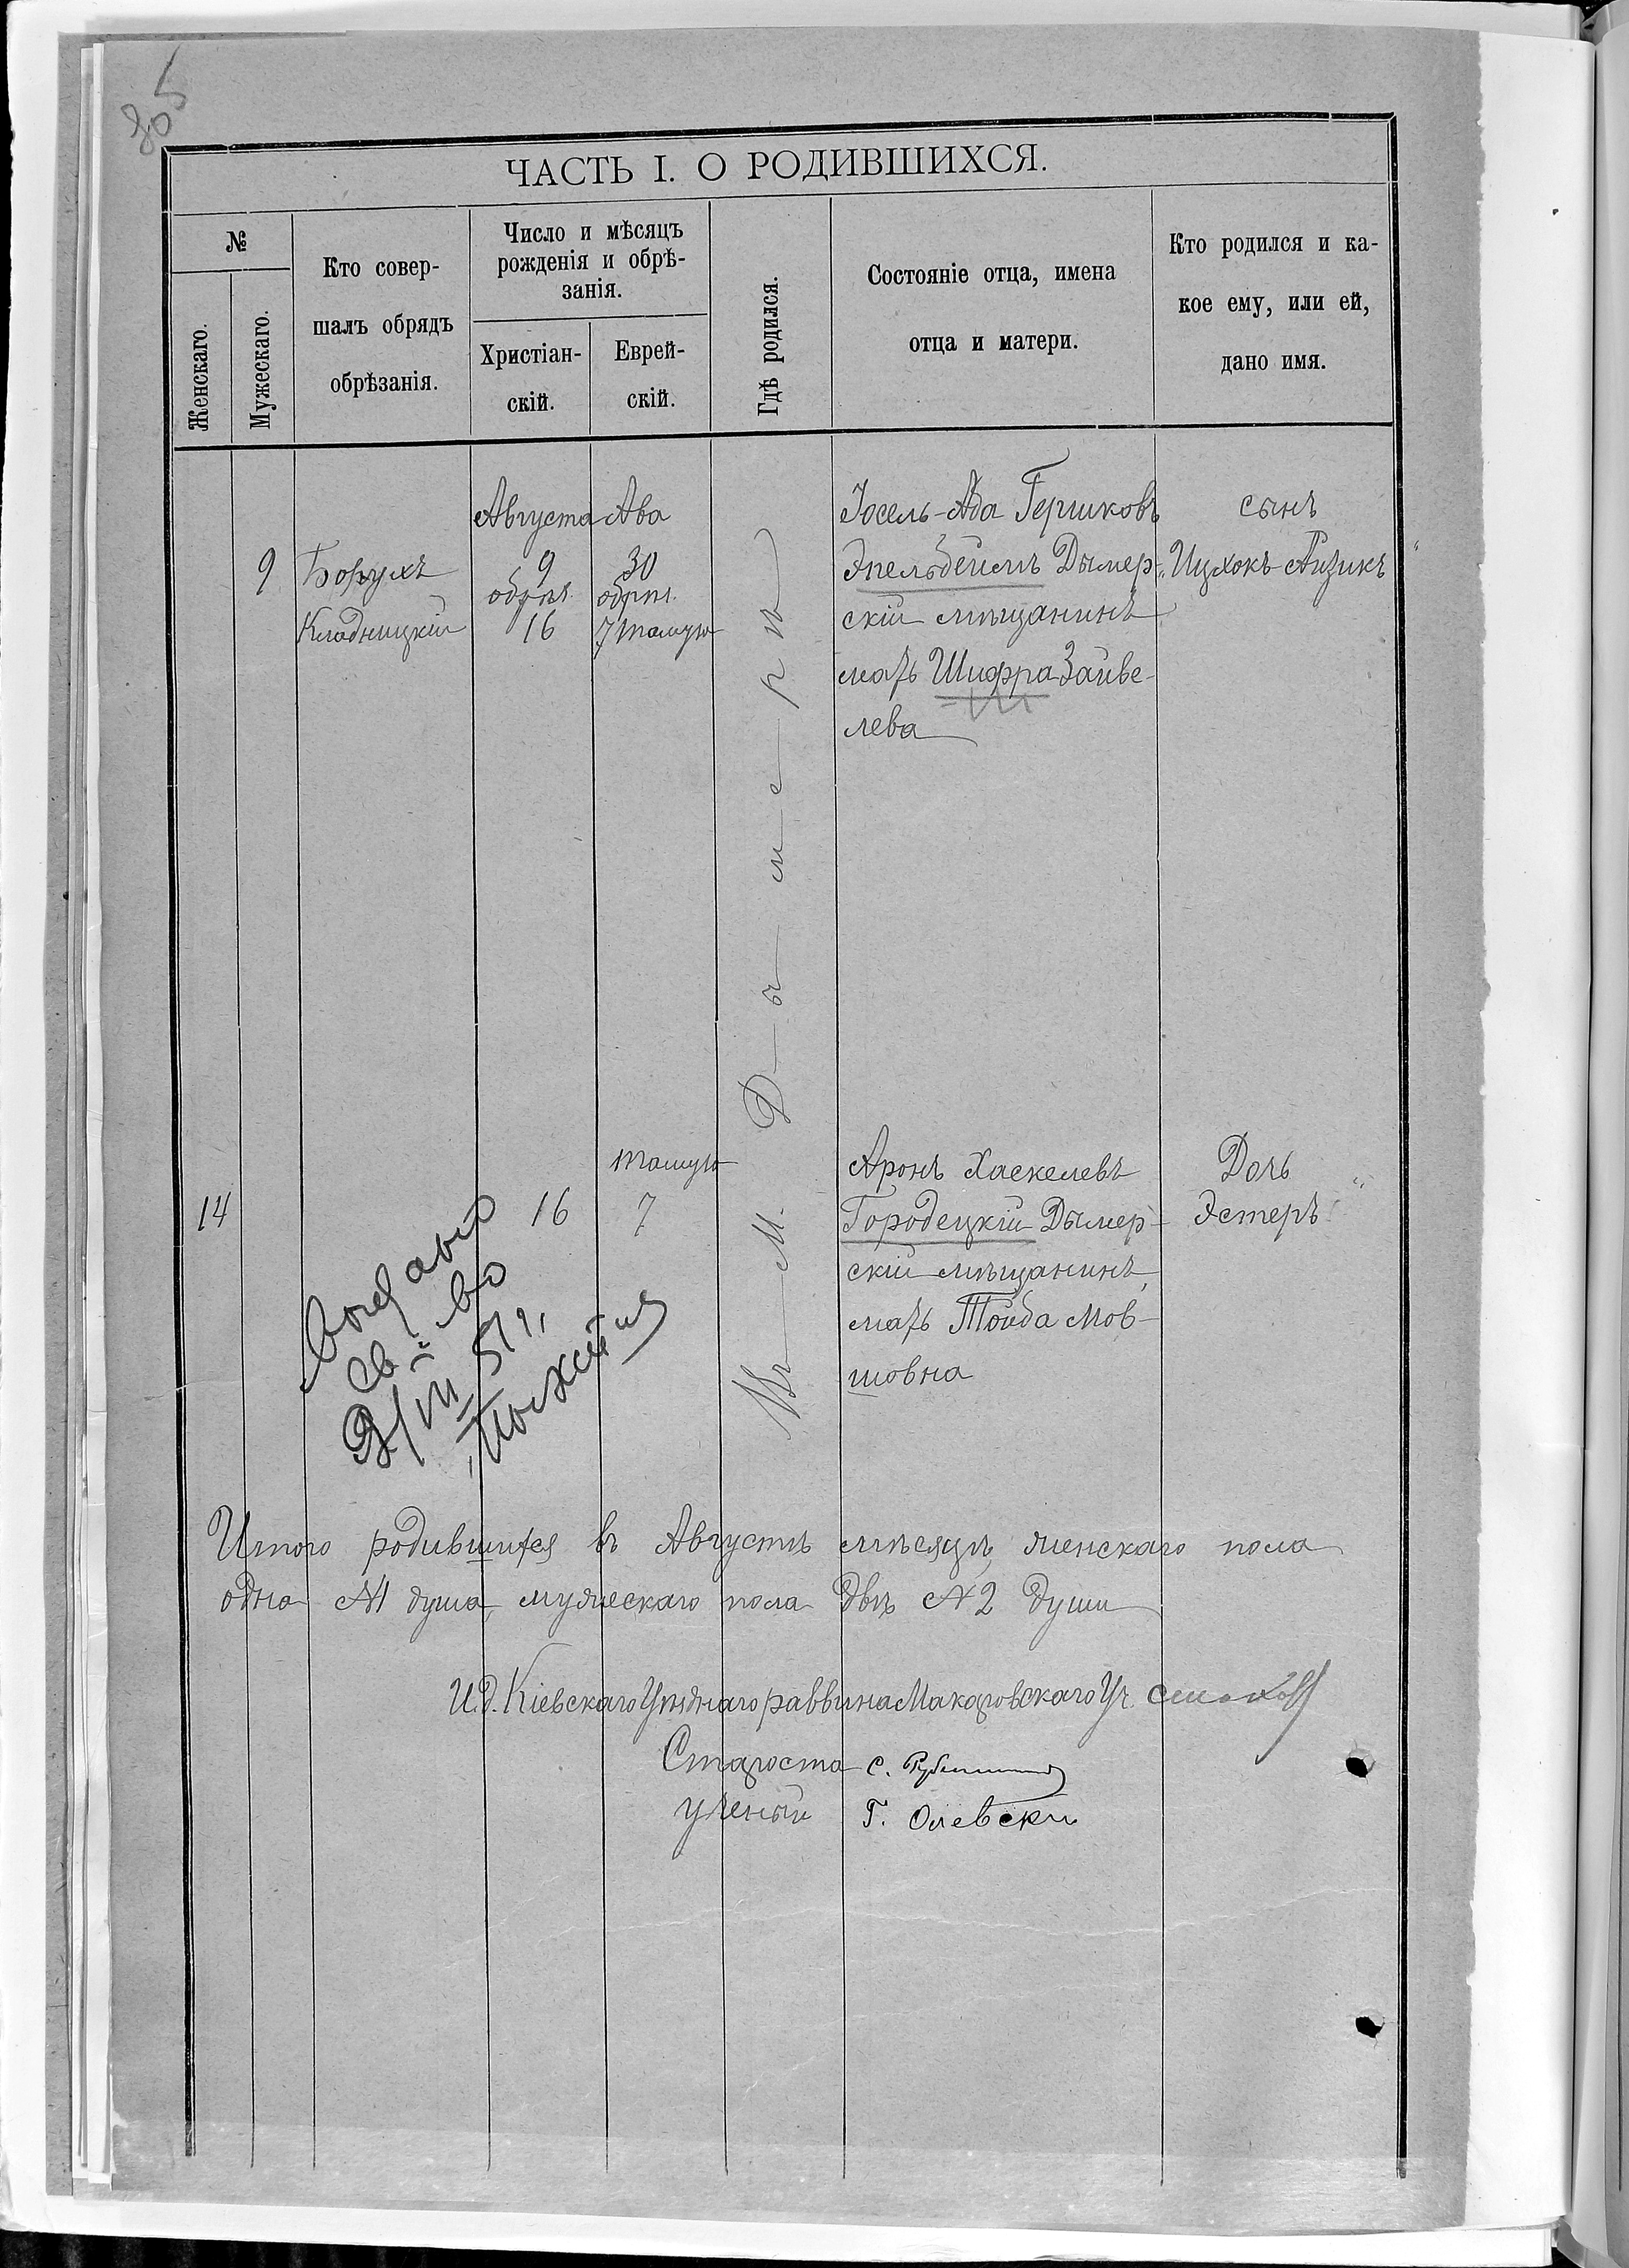 805
ЧАСТЬ I. О РОДИВШИХСЯ.
№
Женскаго.
Мужескаго.
Кто совер-
шалъ обрядъ
обрѣзанія.
Число и мѣсяцъ
рожденія и обрѣ-
занія.
Христіан-
скій.
Еврей-
скій.
Гдѣ родился.
Состояніе отца, имена
отца и матери.
Кто родился и ка-
кое ему, или ей,
дано имя.
Августа Ава
9 Борухъ 9 30
обрѣз. обрѣз.
Кладницкій 16 7
Іосель-Аба Гершковъ
Эпельбеймъ Дымер-
скій мѣщанинъ
мать Шифра Зайве-
лева
сынъ
„Ицхокъ-Айзикъ“
Въ м. Дымерѣ
14 16 7
Аронъ Хаскелевъ
Городецкій Дымер-
скій мѣщанинъ,
мать Тойба Мов-
шовна
Дочь
Эстеръ“
Выдано
св-во
/III 51 г.
Итого родившихся въ Августѣ мѣсяцѣ женскаго пола
одна №1 душа, мужескаго пола двѣ №2 души
И.д. Кіевскаго Уѣзднаго раввина Макаровскаго Уч.
Староста С.
ученый Г. Олевски